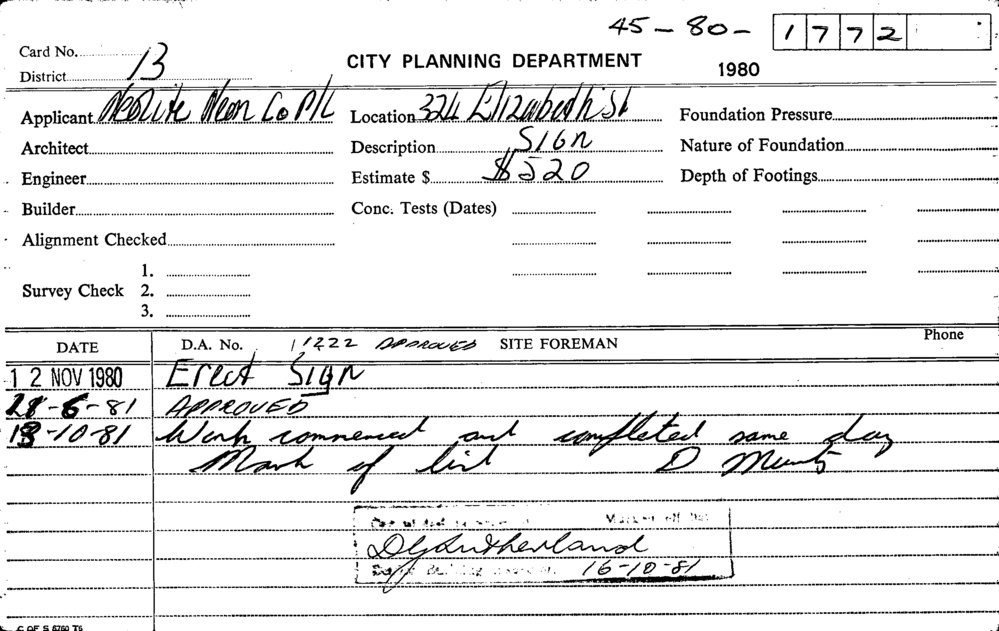 45-80- 1772
Card No.
District 13
CITY PLANNING DEPARTMENT
1980
Applicant Neolite Neon Co P/L Location 324 Elizabeth St Foundation Pressure
Architect Description Sign Nature of Foundation
Engineer Estimate $ $520 Depth of Footings
Builder Conc. Tests (Dates)
Alignment Checked
1.
Survey Check 2.
3.
DATE D.A. No. 11222 APPROVED SITE FOREMAN Phone
12 NOV 1980 Erect Sign
28-6-81 APPROVED
13-10-81 Work commenced and completed same day
Mark of list D
Marked off
D G Sutherland
Building 16-10-81
C OF S 6760 T6